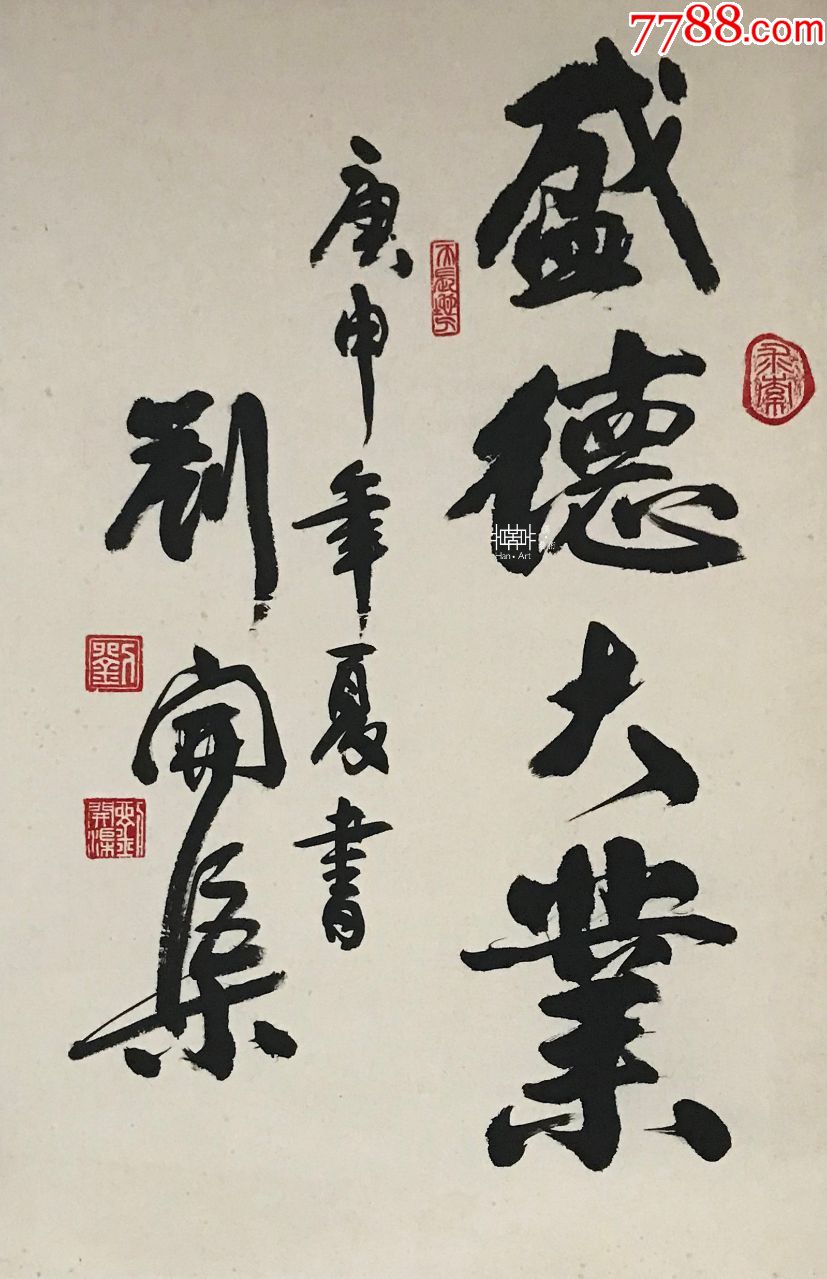 7788.com
盛德大業
庚申年夏書
劉開渠
Han·Art
劉
劉開渠